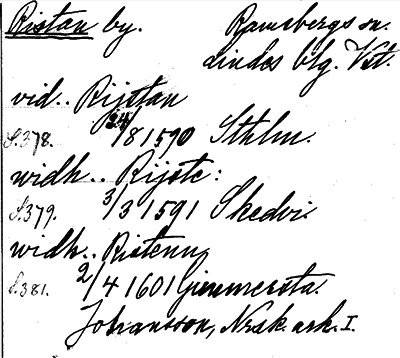 Ristan by. Ramsbergs sn.
Lindes blg. Vst.
vid.. Rijstan
S.378. 24/8 1590 Sthlm.
widh.. Rijste:
S.379. 3/3 1591 Skedvi
widh.. Ristenn
S.381. 2/4 1601 Gimmersta.
Johansson, Norak. ark. I.